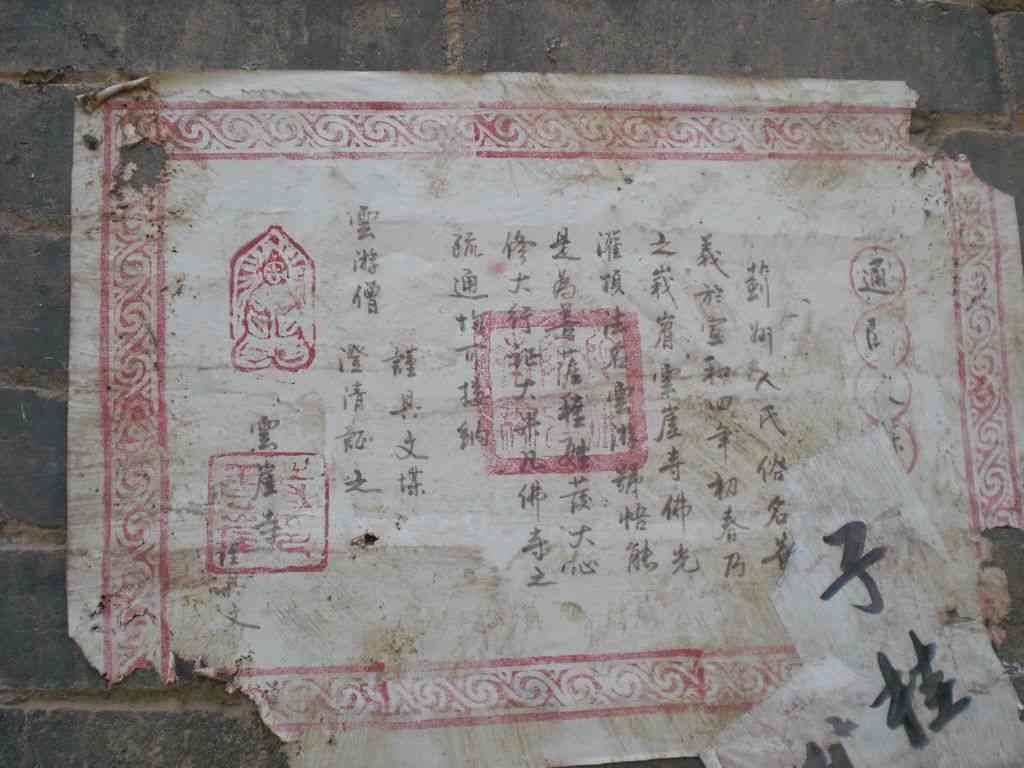 通
薊州人民俗名
義於宣和四年初春乃
之峩眉雲崖寺佛光
灌頂法名雲游號悟能
是為菩薩種姓發大心
修大行証大果凡佛寺之
疏通均可接納
謹具文牒
雲游僧 澄清証之
雲崖寺
謹具文
子
桂